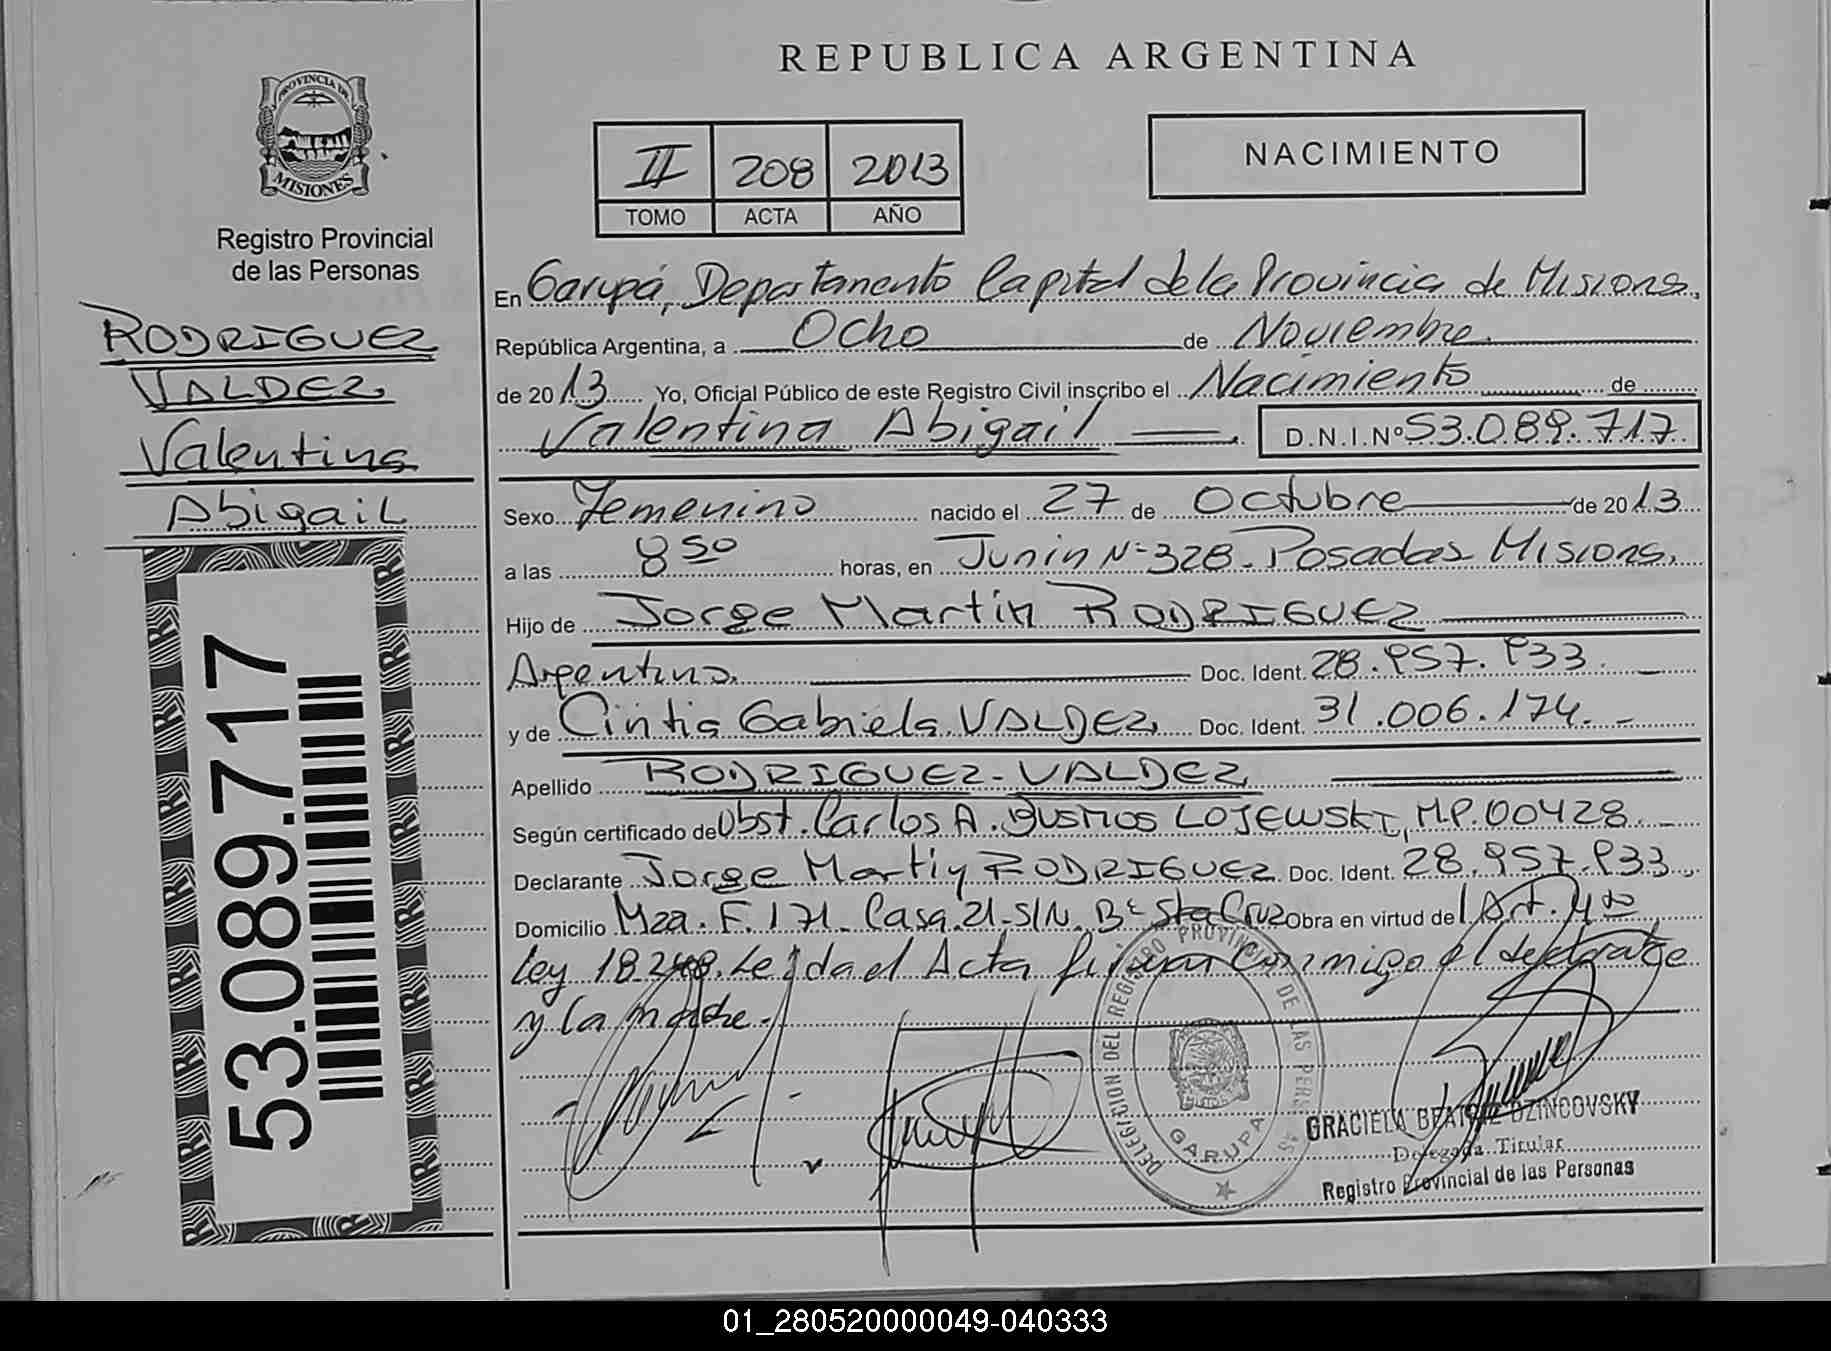 REPUBLICA ARGENTINA
PROVINCIA DE
MISIONES
Registro Provincial
de las Personas
II 208 2013
TOMO ACTA AÑO
NACIMIENTO
RODRIGUEZ
VALDEZ
Valentina
Abigail
53.089.717
En Garupá, Departamento Capital de la Provincia de Misiones,
República Argentina, a Ocho de Noviembre
de 2013 Yo, Oficial Público de este Registro Civil inscribo el Nacimiento de
Valentina Abigail D.N.I.Nº 53.089.717
Sexo Femenino nacido el 27 de Octubre de 2013
a las 8 50 horas, en Junin Nº 328. Posadas Misiones.
Hijo de Jorge Martin RODRIGUEZ
Argentino. Doc. Ident. 28.957.933
y de Cintia Gabriela VALDEZ Doc. Ident. 31.006.174.
Apellido RODRIGUEZ - VALDEZ
Según certificado de Obst. Carlos A. BUSTOS LOJEWSKI, M.P. 00428.
Declarante Jorge Martin RODRIGUEZ Doc. Ident. 28.957.933
Domicilio Mza. F. 171. Casa. 21. S/N. Bº Sta Cruz Obra en virtud del Art. 4to
Ley 18.248. Leida el Acta firman conmigo el declarante
y la madre.
DELEGACION DEL REGISTRO PROVINCIAL DE LAS PERSONAS
GARUPA
GRACIELA BEATRIZ DZINCOVSKY
Delegada Titular
Registro Provincial de las Personas
01_280520000049-040333